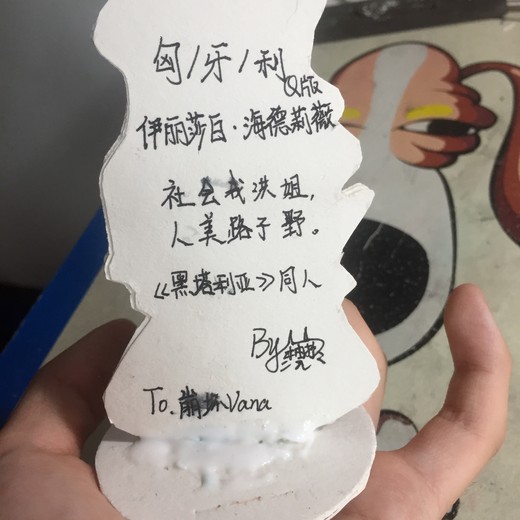 匈/牙/利
Q版
伊丽莎白·海德莉薇
社会我洪姐,
人美路子野。
《黑塔利亚》同人
By
To. 崩坏Vana